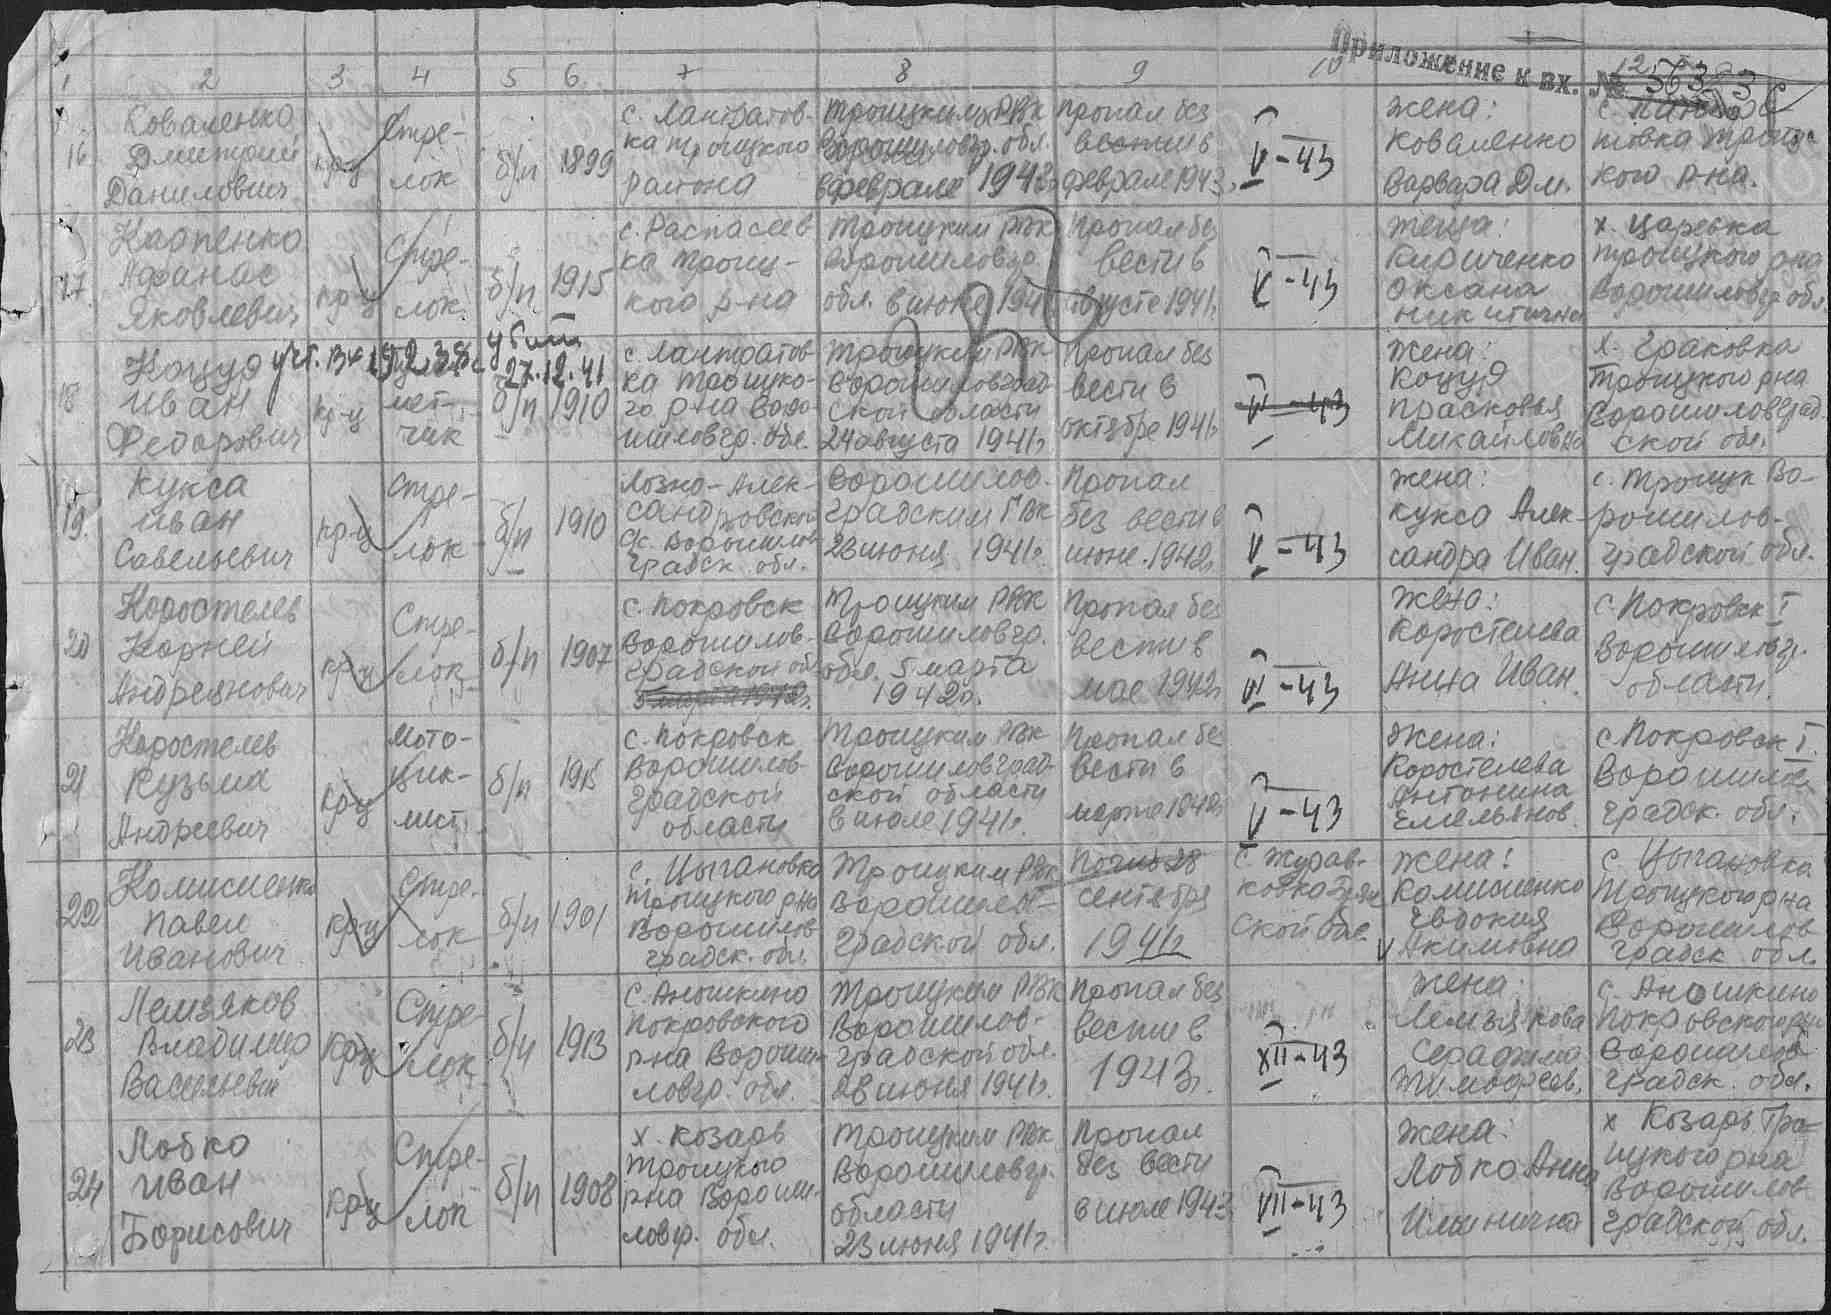 Приложение к вх. № 56323с
1 2 3 4 5 6. 7 8 9 10 12
16 Коваленко Дмитрий Данилович
кр-ц
Стре-
лок
б/п
1899
с. Лантратов-
ка Троицкого
района
Троицким РВК
Ворошиловгр. обл.
в феврале 1942г.
Пропал без
вести в
феврале 1943г.
V-43
Жена:
Коваленко
Варвара Дм.
с.
Троицкого р-на.
17.
Карпенко
Афанас
Яковлевич
кр-ц
Стре-
лок.
б/п
1915
с. Распасеев
ка Троиц-
кого р-на
Троицким РВК
Ворошиловгр.
обл. в июне 1941
Пропал без
вести в
августе 1941г.
V-43
Жена:
Кириченко
Оксана
Никитична
х. Царевка
Троицкого р-на
Ворошиловгр. обл.
18
Коцуя
Иван
Федорович
убит
27.12.41
кр-ц
мет-
чик
б/п
1910
с. Лантратов
ка Троицко-
го р-на Воро-
шиловгр. обл.
Троицким РВК
Ворошиловград-
ской области
24 августа 1941г.
Пропал без
вести в
октябре 1941г.
V-43
Жена:
Коцуя
Прасковья
Михайловна
х. Граковка
Троицкого р-на
Ворошиловград-
ской обл.
19.
Кукса
Иван
Савельевич
кр-ц
Стре-
лок
б/п
1910
Лозно-Алек-
сандровский
Ворошилов-
градск. обл.
Ворошилов-
градским ГВК
23 июня 1941г.
Пропал
без вести в
июне 1942г.
V-43
Жена:
Кукса Алек-
сандра Иван.
с. Троицк Во-
рошилов-
градской обл.
20
Коростелев
Корней
Андреянович
кр-ц
Стре-
лок
б/п
1907
с. Покровск
Ворошилов-
градской обл
5 марта 1942г.
Троицким РВК
Ворошиловгр.
обл. 5 марта
1942г.
Пропал без
вести в
мае 1942г
VI-43
Жена:
Коростелева
Анна Иван.
с. Покровск I
Ворошиловгр.
области.
21
Коростелев
Кузьма
Андреевич
кр-ц
Мото-
цик-
лист
б/п
1915
с. Покровск
Ворошилов-
градской
области
Троицким РВК
Ворошиловград-
ской области
в июле 1941г.
Пропал без
вести в
марте 1942г
V-43
Жена:
Коростелева
Антонина
Емельянов.
с. Покровск I.
Ворошилов
градск. обл.
22
Комисиенко
Павел
Иванович
кр-ц
Стре-
лок
б/п
1901
с. Цыгановка
Троицкого р-на
Ворошилов
градск. обл.
Троицким РВК
Ворошилов-
градской обл.
Погиб 28
сентября
1941г
с. Журав-
ской обл.
Жена:
Комисиенко
Евдокия
Акимовна
с. Цыгановка
Троицкого р-на
Ворошилов
градск обл.
23
Лемзяков
Владимир
Васильевич
кр-ц
Стре-
лок
б/п
1913
с. Аношкино
Покровского
р-на Вороши-
ловгр. обл.
Троицким РВК
Ворошилов-
градской обл.
28 июня 1941г.
Пропал без
вести в
1943г.
XII-43
Жена:
Лемзякова
Серафима
Тимофеев.
с. Аношкино
Покровского р-на
Ворошилов
градск. обл.
24
Лобко
Иван
Борисович
кр-ц
Стре-
лок
б/п
1908
х. Козарь
Троицкого
р-на Вороши-
ловгр. обл.
Троицким РВК
Ворошиловгр.
области
23 июня 1941г.
Пропал
без вести
в июле 1943
VII-43
Жена:
Лобко Анна
Ильинична
х Козарь Тро-
ицкого р-на
Ворошилов-
градской обл.